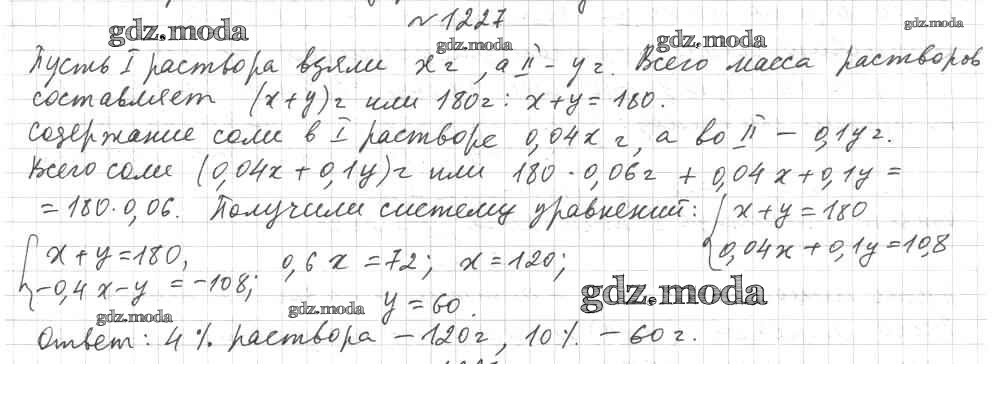 №1227
gdz.moda
gdz.moda
gdz.moda
gdz.moda
Пусть I раствора взяли x г, а II - y г. Всего масса растворов
составляет (x+y)г или 180г: x+y=180.
Содержание соли в I растворе 0,04x г, а во II - 0,1y г.
Всего соли (0,04x+0,1y)г или 180·0,06г + 0,04x+0,1y=
=180·0,06. Получили систему уравнений: { x+y=180
0,04x+0,1y=10,8
{ x+y=180,
-0,4x-y=-108; 0,6x=72; x=120;
y=60.
gdz.moda
gdz.moda
gdz.moda
Ответ: 4% раствора - 120г, 10% - 60г.